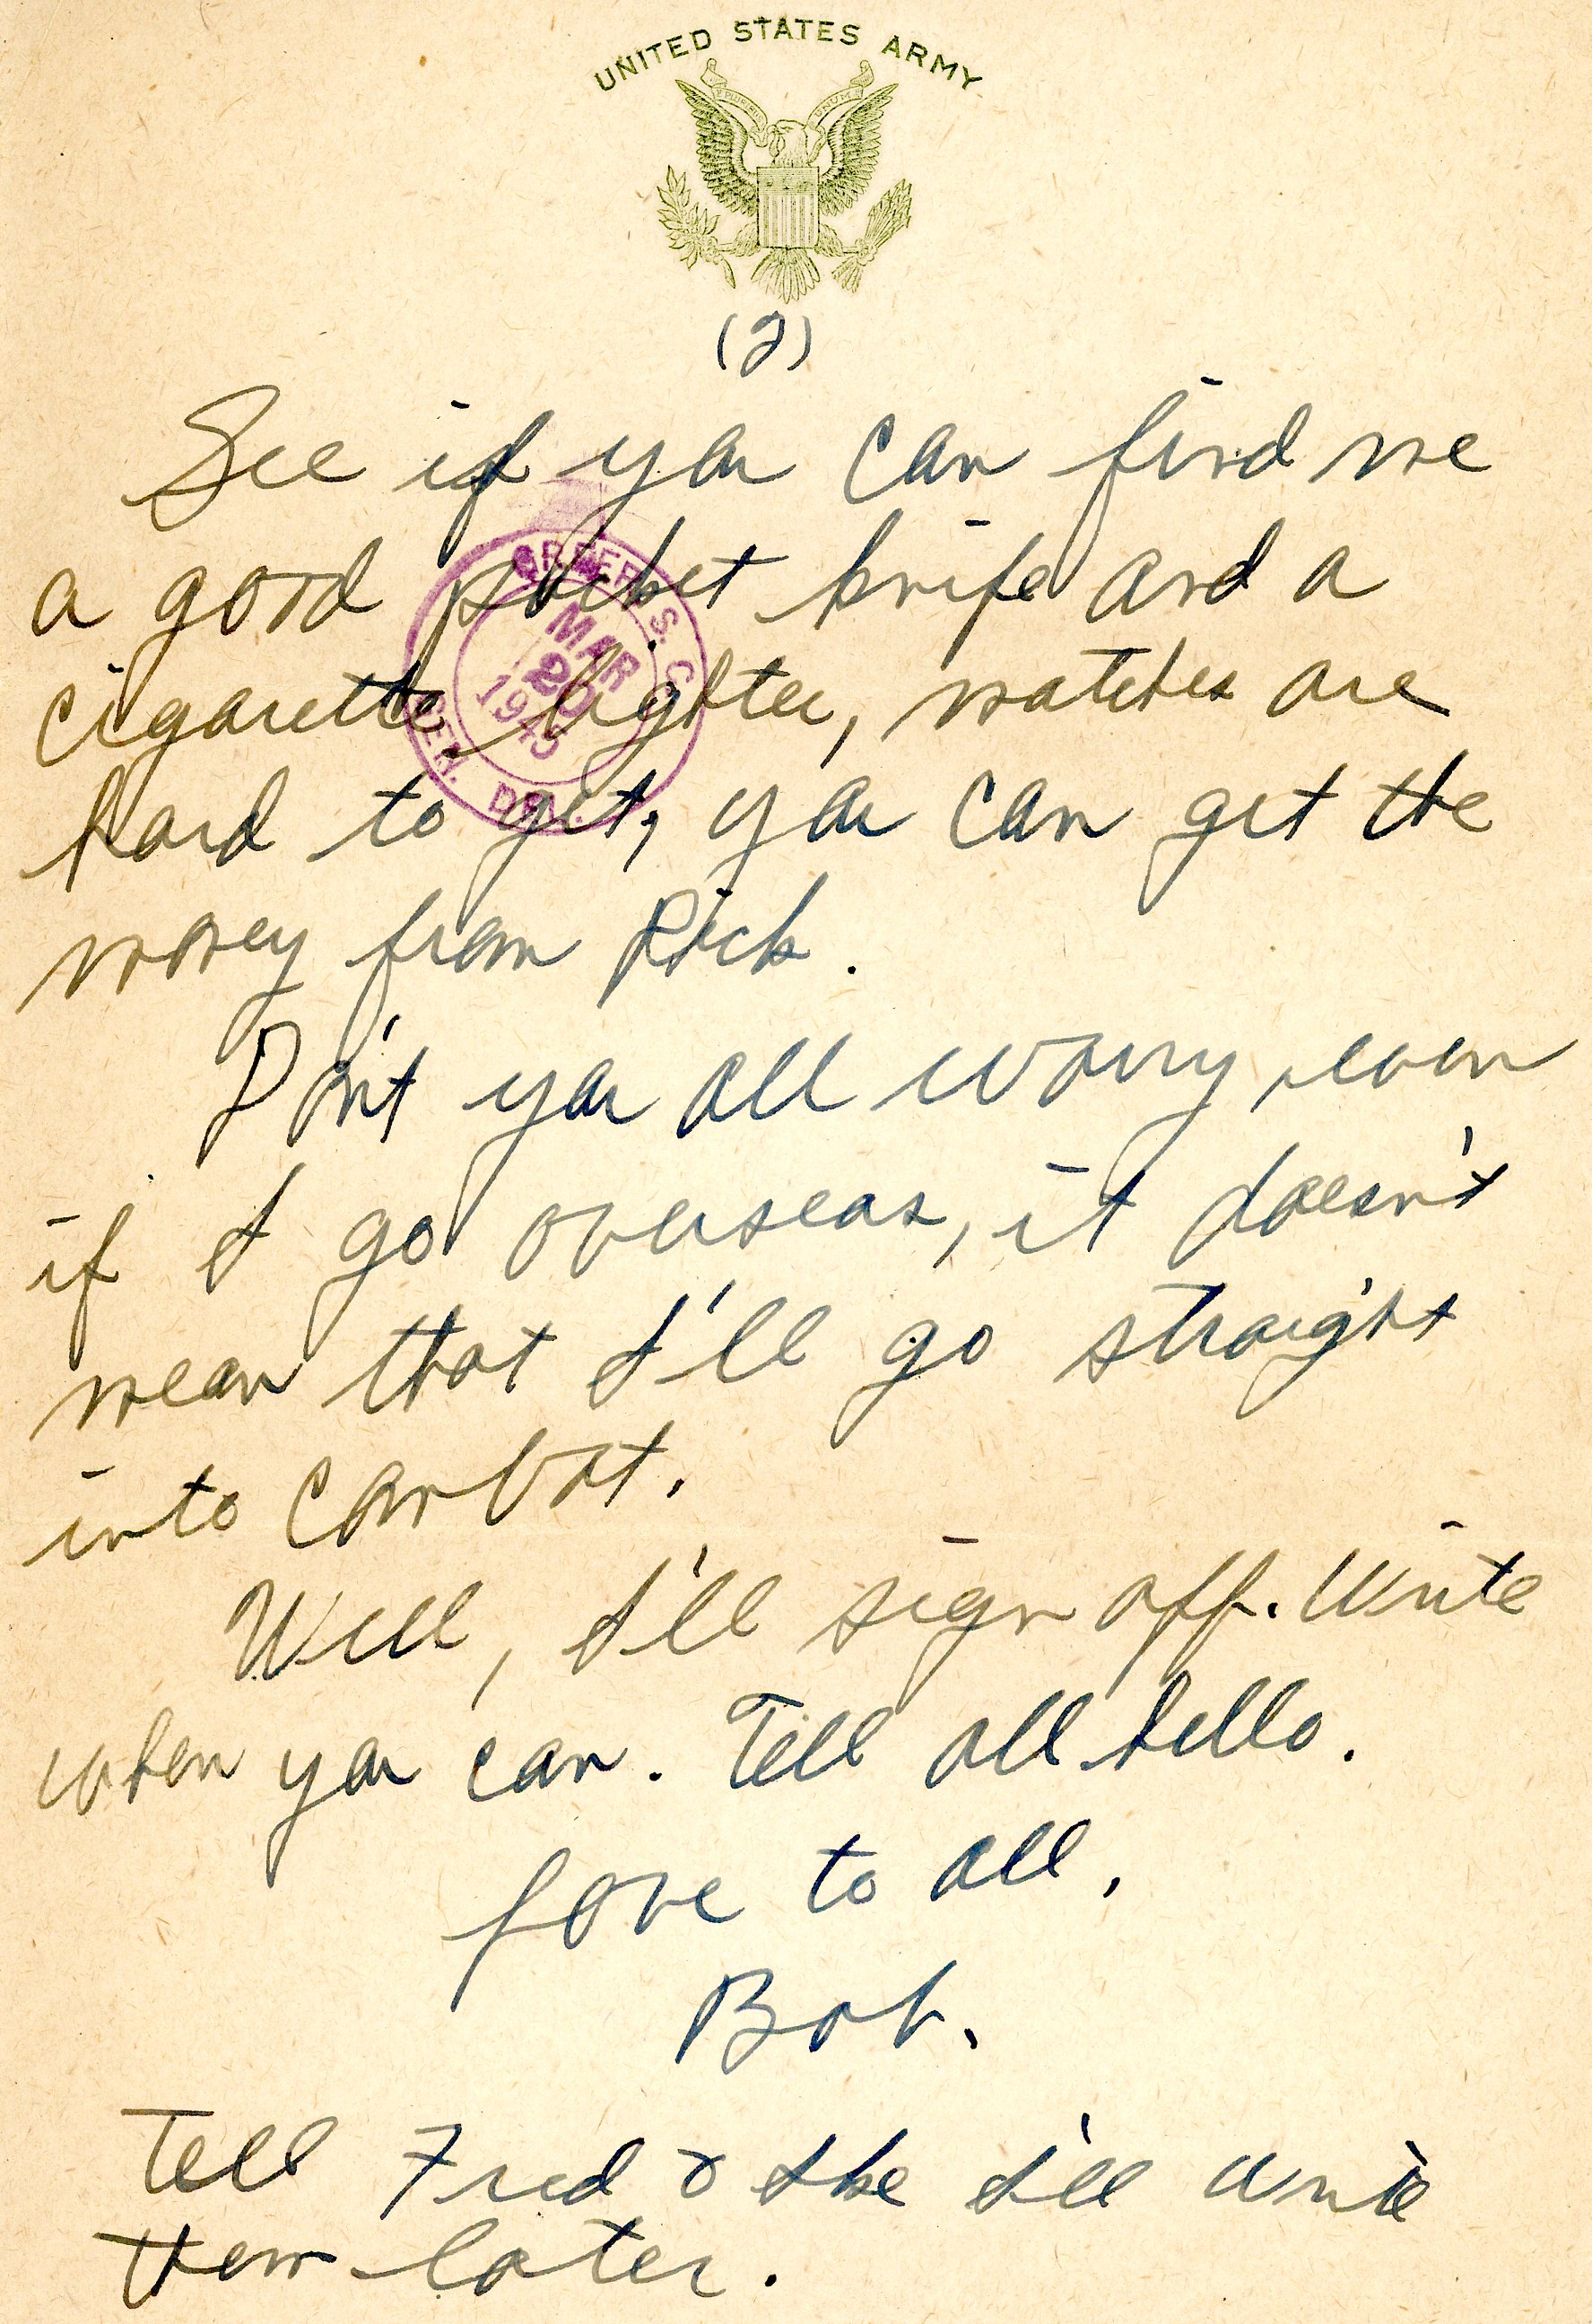 UNITED STATES ARMY
E PLURIBUS UNUM
(2)
See if you can find me
a good pocket knife and a
cigarette lighter, matches are
hard to get, you can get the
money from Rick.
Don't you all worry, even
if I go overseas, it doesn't
mean that I'll go straight
into combat.
Well, I'll sign off. Write
when you can. Tell all hello.
Love to all,
Bob.
Tell Fred & Ike I'll write
them later.
GREER S.C.
MAR
20
1945
GEN. DEL.